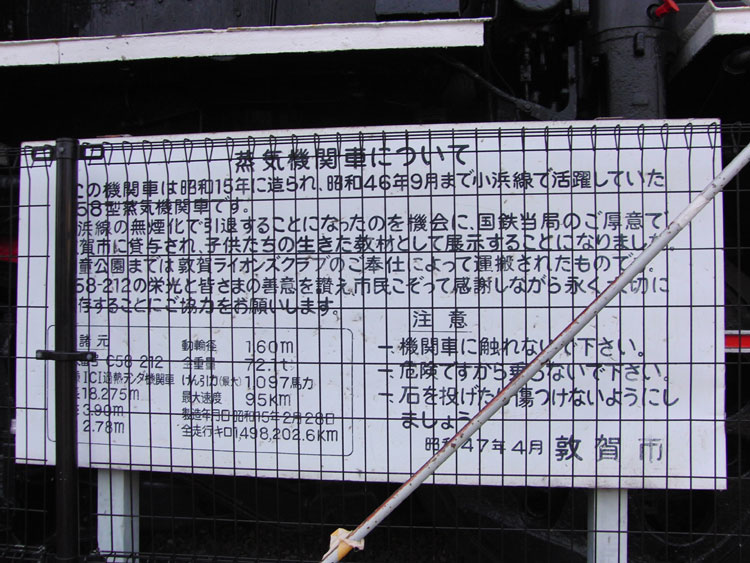 蒸気機関車について
この機関車は昭和15年に造られ、昭和46年9月まで小浜線で活躍していた
58型蒸気機関車です。
浜線の無煙化で引退することになったのを機会に、国鉄当局のご厚意で
賀市に貸与され、子供たちの生きた教材として展示することになりました。
童公園までは敦賀ライオンズクラブのご奉仕によって運搬されたものです。
58-212の栄光と皆さまの善意を讃え、市民こぞって感謝しながら永く大切に
存することにご協力をお願いします。
諸元
C58-212
IC1過熱テンダ機関車
18.275m
3.90m
2.78m
動輪径 1.60m
全重量
けん引力(最大) 1,097馬力
最大速度 95Km
製造年月日 昭和15年2月28日
全走行キロ 1,498,202.6Km
注意
一、機関車に触れないで下さい。
一、危険ですから乗らないで下さい。
一、石を投げたり傷つけないようにし
ましょう。
昭和47年4月 敦賀市